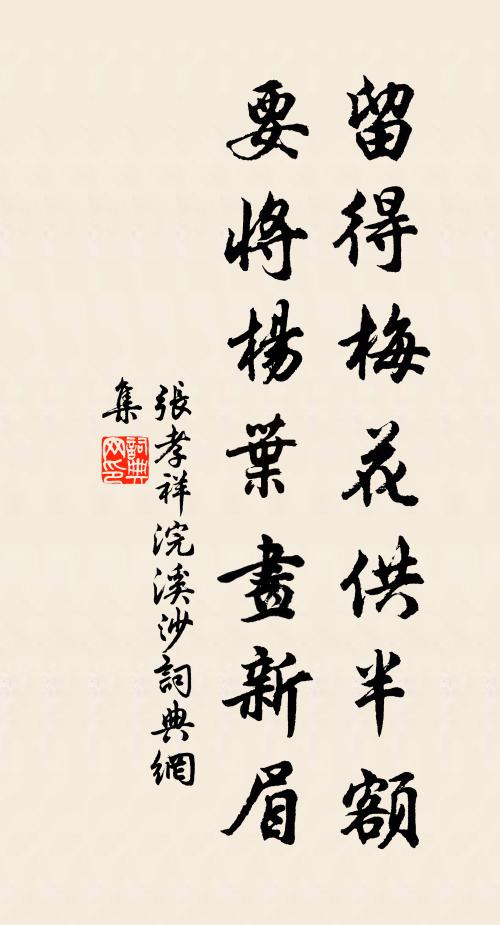 留得梅花供半額
要將楊葉畫新眉
張孝祥浣溪沙詞典網
集
詞典网印